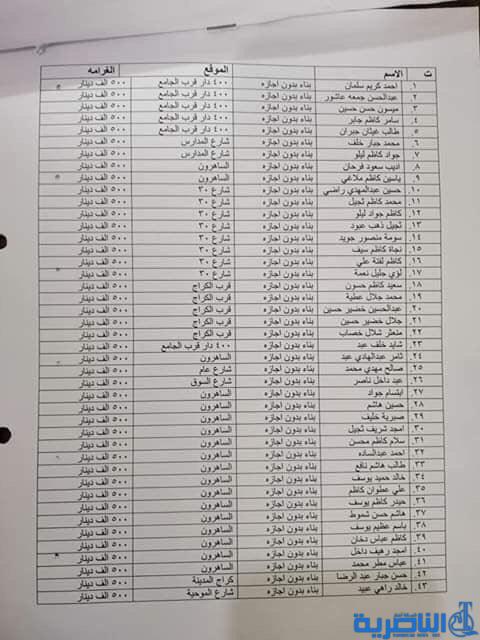 ت الاسم الموقع الغرامه
١. احمد كريم سلمان بناء بدون اجازه ٤٠٠ دار قرب الجامع ٥٠٠ الف دينار
٢. عبدالحسن جمعه عاشور بناء بدون اجازه ٤٠٠ دار قرب الجامع ٥٠٠ الف دينار
٣. ميسون حسن حسين بناء بدون اجازه ٤٠٠ دار قرب الجامع ٥٠٠ الف دينار
٤. سامر كاظم جابر بناء بدون اجازه ٤٠٠ دار قرب الجامع ٥٠٠ الف دينار
٥. طالب عيثان جبران بناء بدون اجازه ٤٠٠ دار قرب الجامع ٥٠٠ الف دينار
٦. محمد جبار خلف بناء بدون اجازه شارع المدارس ٥٠٠ الف دينار
٧. جواد كاظم ليلو بناء بدون اجازه شارع المدارس ٥٠٠ الف دينار
٨. اديب سعود فرحان بناء بدون اجازه الساهرون ٥٠٠ الف دينار
٩. ياسين كاظم ملاغي بناء بدون اجازه الساهرون ٥٠٠ الف دينار
١٠. حسين عبدالمهدي راضي بناء بدون اجازه شارع ٣٠ ٥٠٠ الف دينار
١١. محمد كاظم ثجيل بناء بدون اجازه شارع ٣٠ ٥٠٠ الف دينار
١٢. كاظم جواد ليلو بناء بدون اجازه شارع ٣٠ ٥٠٠ الف دينار
١٣. ثجيل ذهب عبود بناء بدون اجازه شارع ٣٠ ٥٠٠ الف دينار
١٤. سومة منصور جويد بناء بدون اجازه شارع ٣٠ ٥٠٠ الف دينار
١٥. نجاة كاظم سيف بناء بدون اجازه شارع ٣٠ ٥٠٠ الف دينار
١٦. كاظم لفتة علي بناء بدون اجازه شارع ٣٠ ٥٠٠ الف دينار
١٧. لؤي جليل نعمة بناء بدون اجازه شارع ٣٠ ٥٠٠ الف دينار
١٨. سعيد كاظم حسون بناء بدون اجازه قرب الكراج ٥٠٠ الف دينار
١٩. محمد جلال عطية بناء بدون اجازه قرب الكراج ٥٠٠ الف دينار
٢٠. عبدالحسين خضير حسين بناء بدون اجازه قرب الكراج ٥٠٠ الف دينار
٢١. جلال خضير حسين بناء بدون اجازه قرب الكراج ٥٠٠ الف دينار
٢٢. منعثر شلال خصاب بناء بدون اجازه قرب الكراج ٥٠٠ الف دينار
٢٣. شايد خلف عبد بناء بدون اجازه ٤٠٠ دار قرب الجامع ٥٠٠ الف دينار
٢٤. ثامر عبدالهادي عبد بناء بدون اجازه الساهرون ٥٠٠ الف دينار
٢٥. صالح مهدي محمد بناء بدون اجازه شارع عام ٥٠٠ الف دينار
٢٦. عبد داخل ناصر بناء بدون اجازه شارع السوق ٥٠٠ الف دينار
٢٧. ابتسام جواد بناء بدون اجازه الساهرون ٥٠٠ الف دينار
٢٨. حسين هاشم بناء بدون اجازه الساهرون ٥٠٠ الف دينار
٢٩. صبرية خليف بناء بدون اجازه الساهرون ٥٠٠ الف دينار
٣٠. امجد شريف ثجيل بناء بدون اجازه الساهرون ٥٠٠ الف دينار
٣١. سلام كاظم محسن بناء بدون اجازه الساهرون ٥٠٠ الف دينار
٣٢. احمد عبدالساده بناء بدون اجازه الساهرون ٥٠٠ الف دينار
٣٣. طالب هاشم نافع بناء بدون اجازه الساهرون ٥٠٠ الف دينار
٣٤. خالد حميد يوسف بناء بدون اجازه الساهرون ٥٠٠ الف دينار
٣٥. علي عطوان كاظم بناء بدون اجازه الساهرون ٥٠٠ الف دينار
٣٦. حيدر كاظم يوسف بناء بدون اجازه الساهرون ٥٠٠ الف دينار
٣٧. هاشم حسن شموط بناء بدون اجازه الساهرون ٥٠٠ الف دينار
٣٨. باسم عظيم يوسف بناء بدون اجازه الساهرون ٥٠٠ الف دينار
٣٩. كاظم عباس دخان بناء بدون اجازه الساهرون ٥٠٠ الف دينار
٤٠. امجد رهيف داخل بناء بدون اجازه الساهرون ٥٠٠ الف دينار
٤١. عباس مطر محمد بناء بدون اجازه الساهرون ٥٠٠ الف دينار
٤٢. حسن جبار عبد الرضا بناء بدون اجازه كراج المدينة ٥٠٠ الف دينار
٤٣. خالد راهي عبيد بناء بدون اجازه شارع الموحية ٥٠٠ الف دينار
شبكة أخبار
الناصرية